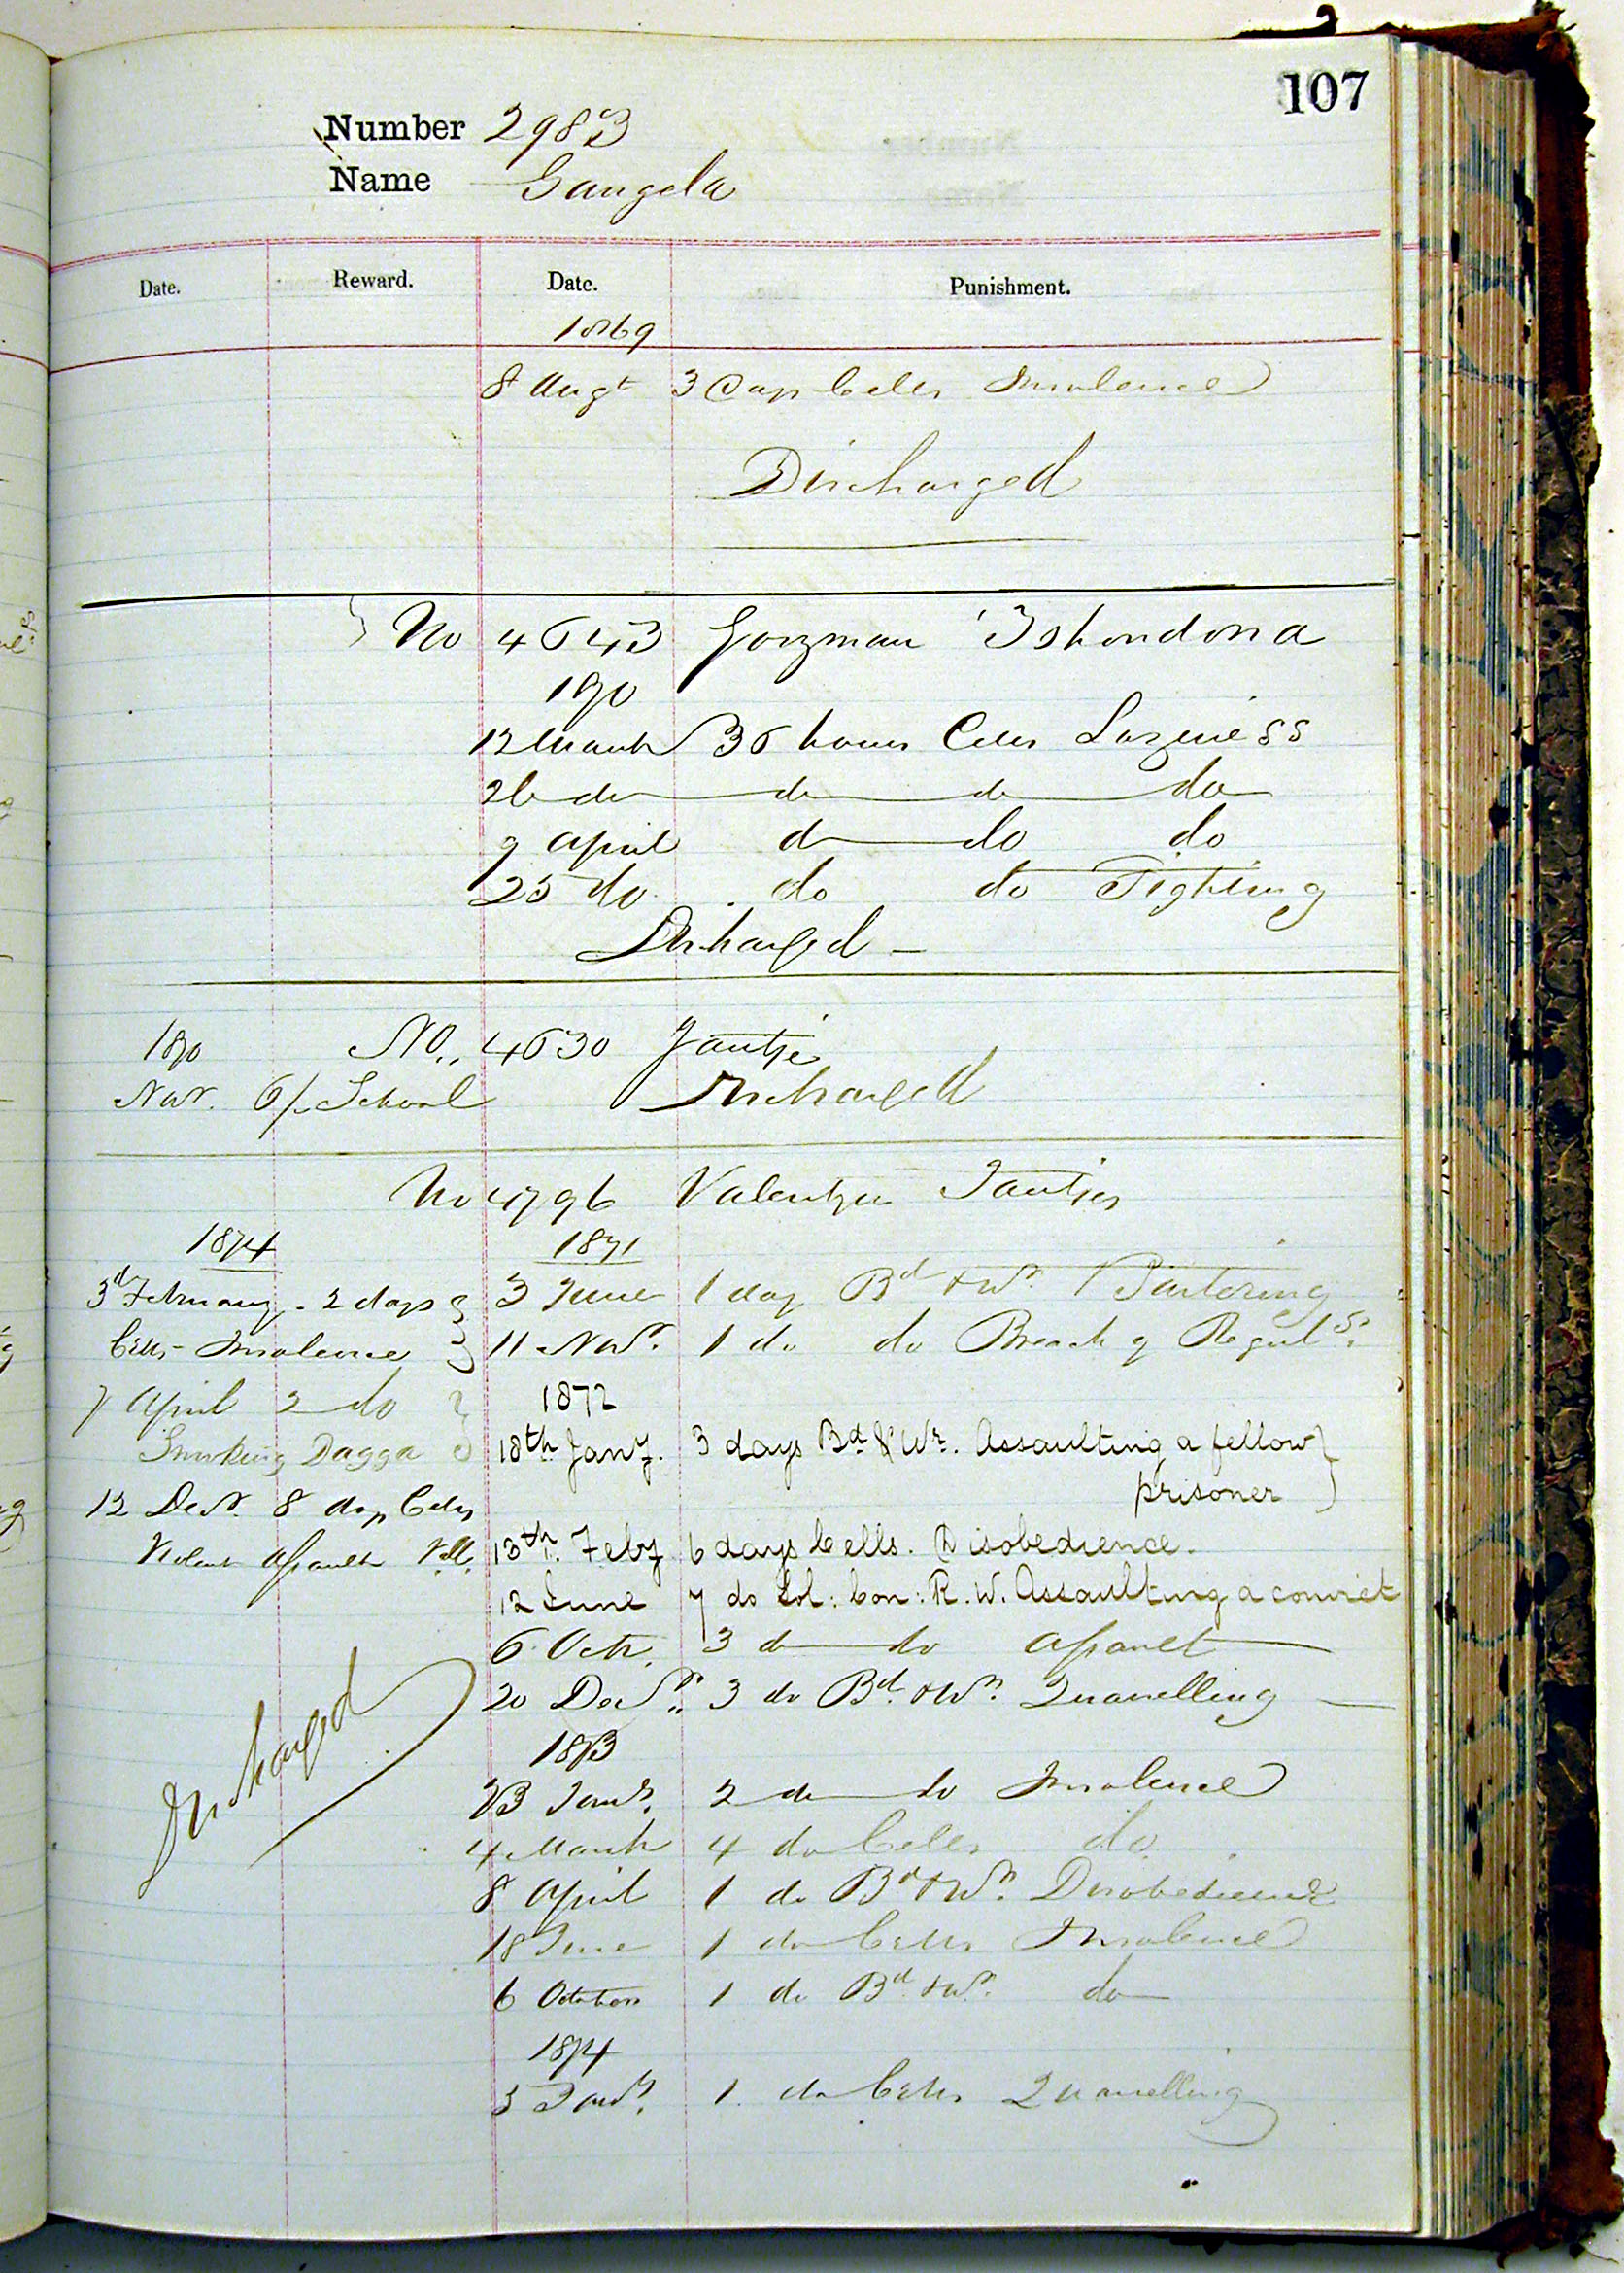 107
Number 2983
Name Gangela
Date. Reward. Date. Punishment.
1869
8 Augt 3 Days Cells Insolence
Discharged
No 4643 Gorzman Tshondona
1870
12 March 36 hours Cells Laziness
26 do do do do
9 April do do do
25 do do do Fighting
Discharged
No. 4630 Jantje
1870
Nov. 6/- School Discharged
No 4796 Valentyn Jantjes
1874
3d February - 2 days
Cells - Insolence
7 April 2 do
Smoking Dagga
12 Decr. 8 days Cells
Violent Assault
Discharged
1871
3 June 1 day Bd & Wr. Bartering
11 Novr. 1 do do Breach of Reguls.
1872
18th Jany. 3 days Bd & Wr. Assaulting a fellow
prisoner
13th. Feby 6 days Cells. Disobedience.
12 June 7 do Sol: Con: R. W. Assaulting a convict
6 Octr. 3 do do Assault
20 Decr. 3 do Bd. & Wr. Quarelling
1873
23 Jany. 2 do do Insolence
4 March 4 do Cells do
8 April 1 do Bd & Wr. Disobedience
18 June 1 do Cells Insolence
6 October 1 do Bd. & Wr. do
1874
5 Jany. 1. do Cells Quarelling